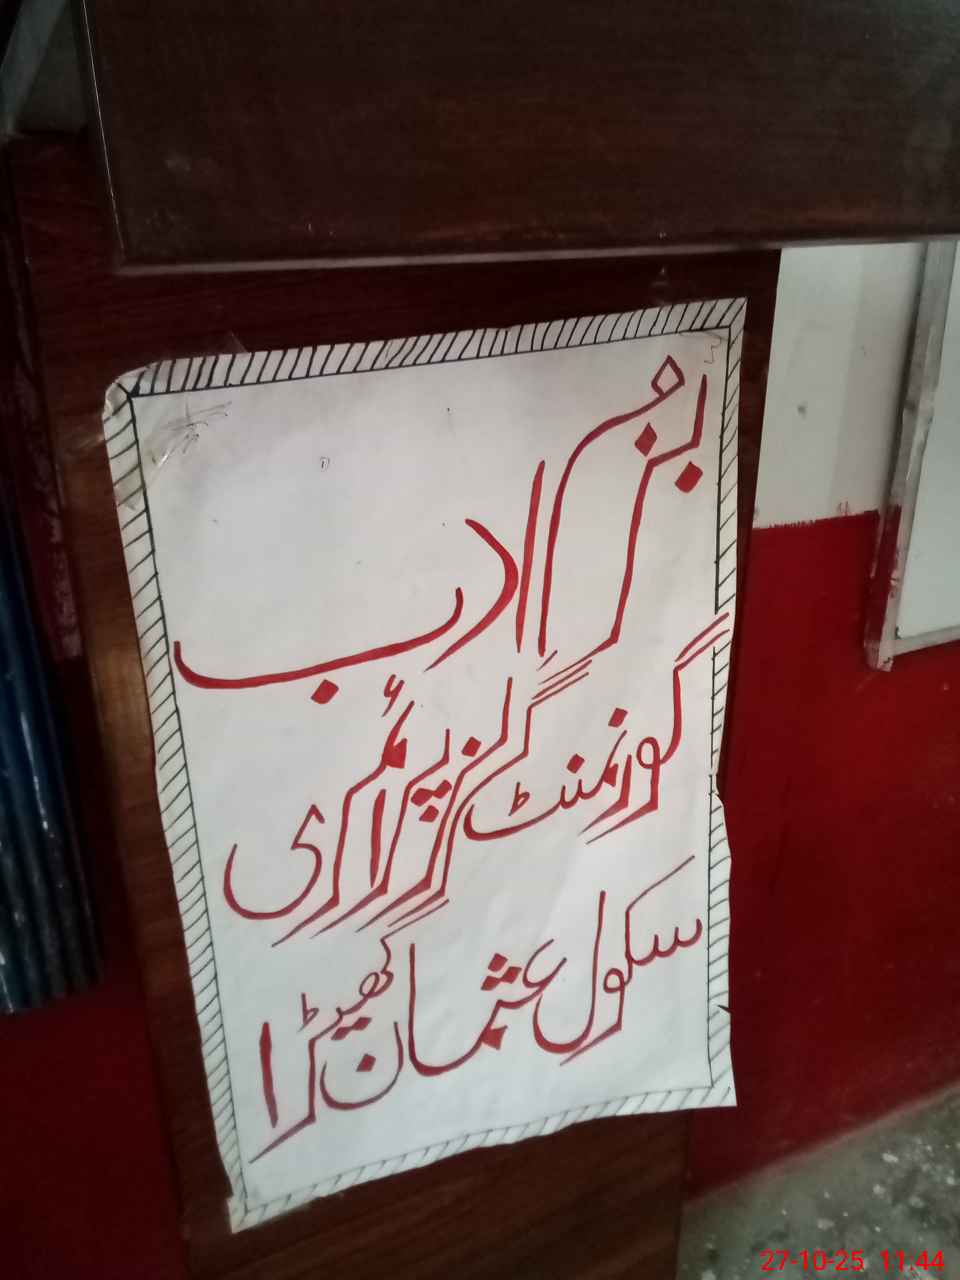 بزم ادب
گورنمنٹ گرلز پرائمری
سکول عثمان کھیڑا
27-10-25 11:44